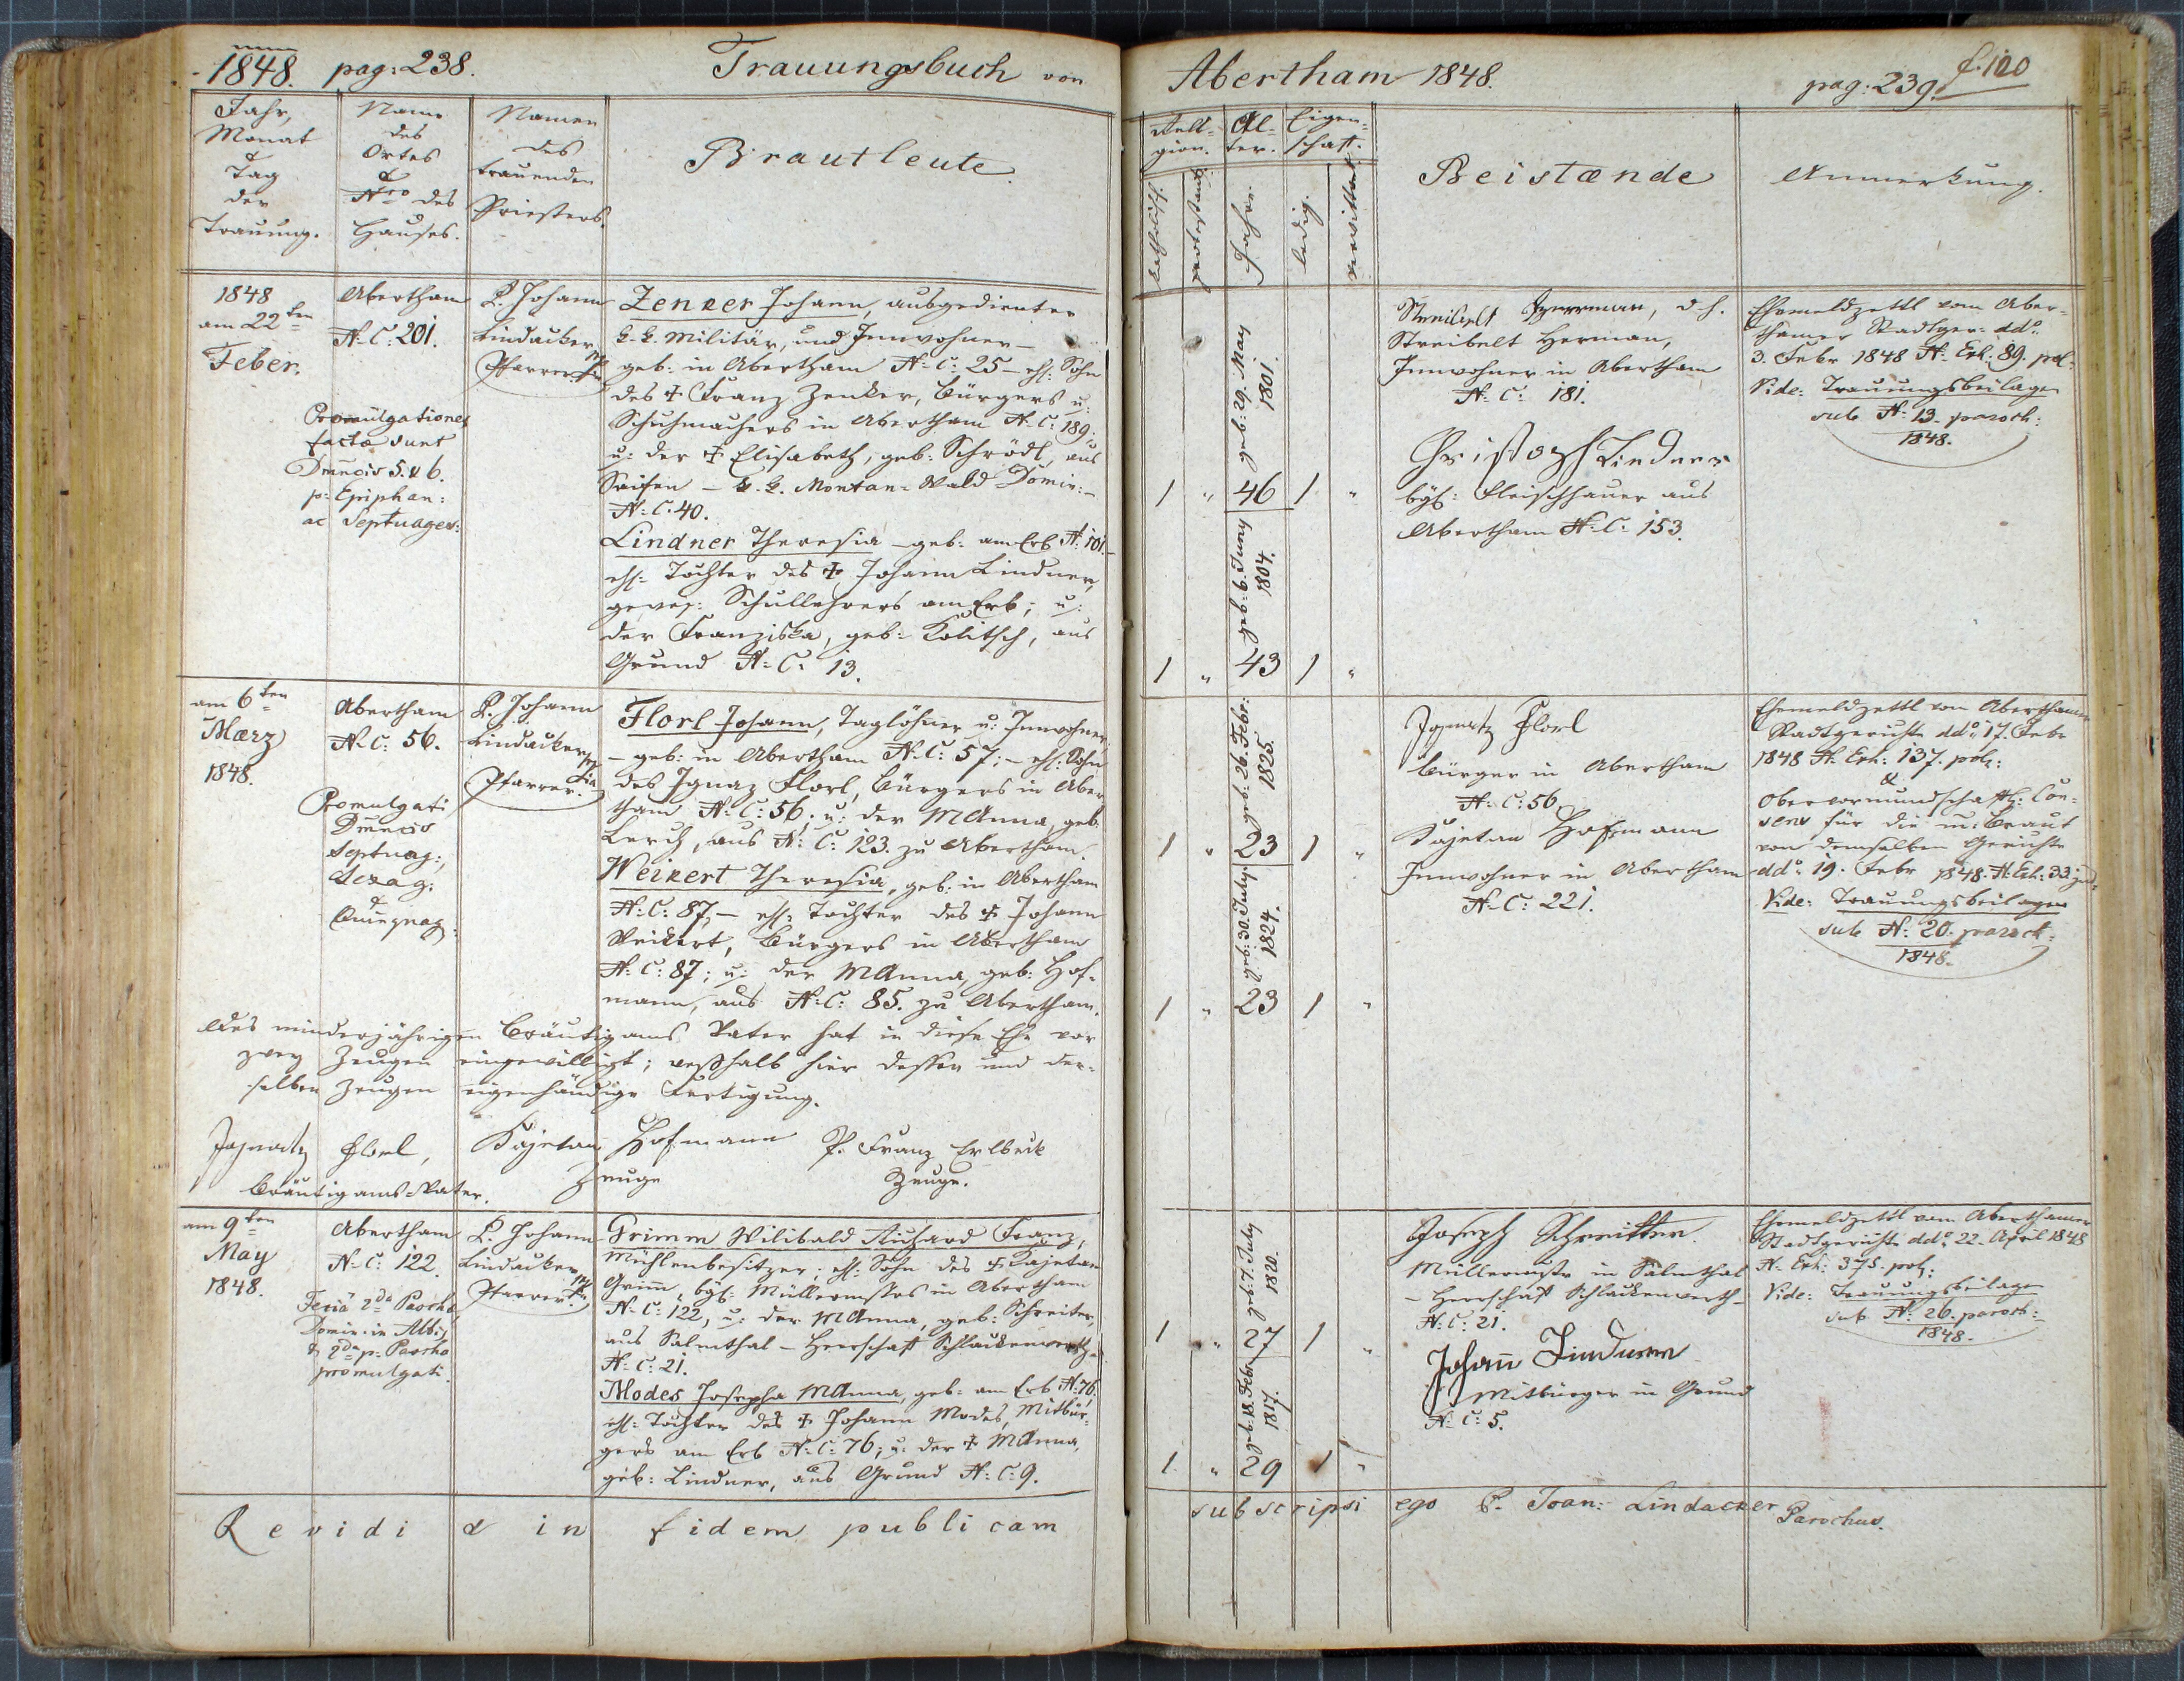 1848. pag: 238. Trauungsbuch von
Jahr,
Monat
&
Tag
der
Trauung.
Name
des
Ortes
&
Nro des
Hauses.
Namen
des
trauenden
Priesters.
Brautleute.
1848
am 22ten
Feber.
Abertham
N: C: 201.
Promulgationes
factæ sunt
Dominicis 5. & 6.
p: Epiphan:
ac Septuages:
P. Johann
Lindacker
Pfarrer.
Zenker Johann, ausgedienter
k. k. Militär, und Innwohner –
geb: in Abertham N: C: 25 – ehl: Sohn
des † Franz Zenker, Bürgers u:
Schuhmachers in Abertham N: C: 189.
u: der † Elisabeth, geb: Schrödl, aus
Seifen – k. k. Montan-Wald Domin: –
N: C: 40.
Lindner Theresia – geb: am Erb N: 101. –
ehl: Tochter des † Johann Lindner,
gewes: Schullehrers am Erb; u:
der Franziska, geb: Kolitsch, aus
Grund N: C: 13.
am 6ten
März
1848.
Abertham
N: C: 56.
Promulgati
Dominicis
Septuag:,
Sexag:
&
Quinquag:
P. Johann
Lindacker
Pfarrer.
Florl Johann, Taglöhner u: Innwohner,
– geb: in Abertham N: C: 57; – ehl: Sohn
des Ignaz Florl, Bürgers in Aber
tham N: C: 56. u: der MAnna, geb:
Lerch, aus N: C: 123. zu Abertham.
Weikert Theresia, geb: in Abertham
N: C: 87, – ehl: Tochter des † Johann
Weikert, Bürgers in Abertham
N: C: 87; u: der MAnna, geb: Hof-
mann, aus N: C: 85. zu Abertham.
Des minderjährigen Bräutigams Vater hat in diese Ehe vor
zwey Zeugen eingewilligt; weßhalb hier dessen und der-
selben Zeugen eigenhändige Fertigung.
Ignatz Florl, Kajetan Hofmann P. Franz Erlbeck
Bräutigams-Vater. Zeuge Zeuge.
am 9ten
May
1848.
Abertham
N: C: 122.
Feriâ 2da Pascha,
Domin: in Albis,
& 2da p: Pascha
promulgati.
P. Johann
Lindacker
Pfarrer.
Grimm Wilibald Richard Franz,
Mühlenbesitzer; ehl: Sohn des † Kajetan
Grim, bgl: Müllermstrs in Abertham
N: C: 122, u: der MAnna, geb: Schreiter,
aus Salmthal – Herrschaft Schlackenwerth –
N: C: 21.
Modes Josepha MAnna, geb: am Erb N: 76,
ehl: Tochter des † Johann Modes, Mitbür-
gers am Erb N: C: 76; u: der † MAnna,
geb: Lindner, aus Grund N: C: 9.
Revidi & in fidem publicam
Abertham 1848. pag: 239. f. 120
Reli-
gion.
Al-
ter.
Eigen-
schaft.
katholisch.
protestant.
Jahre.
ledig.
verwittwet.
Beistænde
Anmerkung.
geb: 29. May
1801.
1 " 46 1 "
geb: 6. Juny
1804.
1 " 43 1 "
Streibelt Herrman, d. h.
Streibelt Herman,
Innwohner in Abertham
N: C: 181.
Christoph Lindner
bgl: Fleischhauer aus
Abertham N: C: 153.
Ehemeldzettl vom Aber-
thamer Stadtger: ddo:
3. Febr 1848 N: Exh: 89. pol:
Vide: Trauungsbeilagen
sub N: 13. paroch:
1848.
geb: 26. Febr:
1825.
1 " 23 1 "
geb: 30. July
1824.
1 " 23 1 "
Ignatz Florl
Bürger in Abertham
N: C: 56.
Kajetan Hofmann
Innwohner in Abertham
N: C: 221.
Ehemeldzettl vom Aberthamer
Stadtgerichte ddo: 17. Febr
1848 N: Exh: 137. pol:
&
Obervormundschaftl: Con-
sens für die m: Braut
von demselben Gerichte
ddo: 19. Febr 1848. N: Exh: 33. jud:
Vide: Trauungsbeilagen
sub N: 20. paroch:
1848.
geb: 7. July
1820.
1 " 27 1 "
geb: 18. Febr
1817.
1 " 29 1 "
Joseph Schreitter.
Müllermstr in Salmthal
– Herrschaft Schlackenwerth –
N: C: 21.
Johann Lindner
Mitbürger in Grund
N: C: 5.
Ehemeldzettl vom Aberthamer
Stadtgerichte ddo: 22. April 1848
N: Exh: 375. pol:
Vide: Trauungsbeilagen
sub N: 26. paroch:
1848.
subscripsi ego P. Joan: Lindacker Parochus.